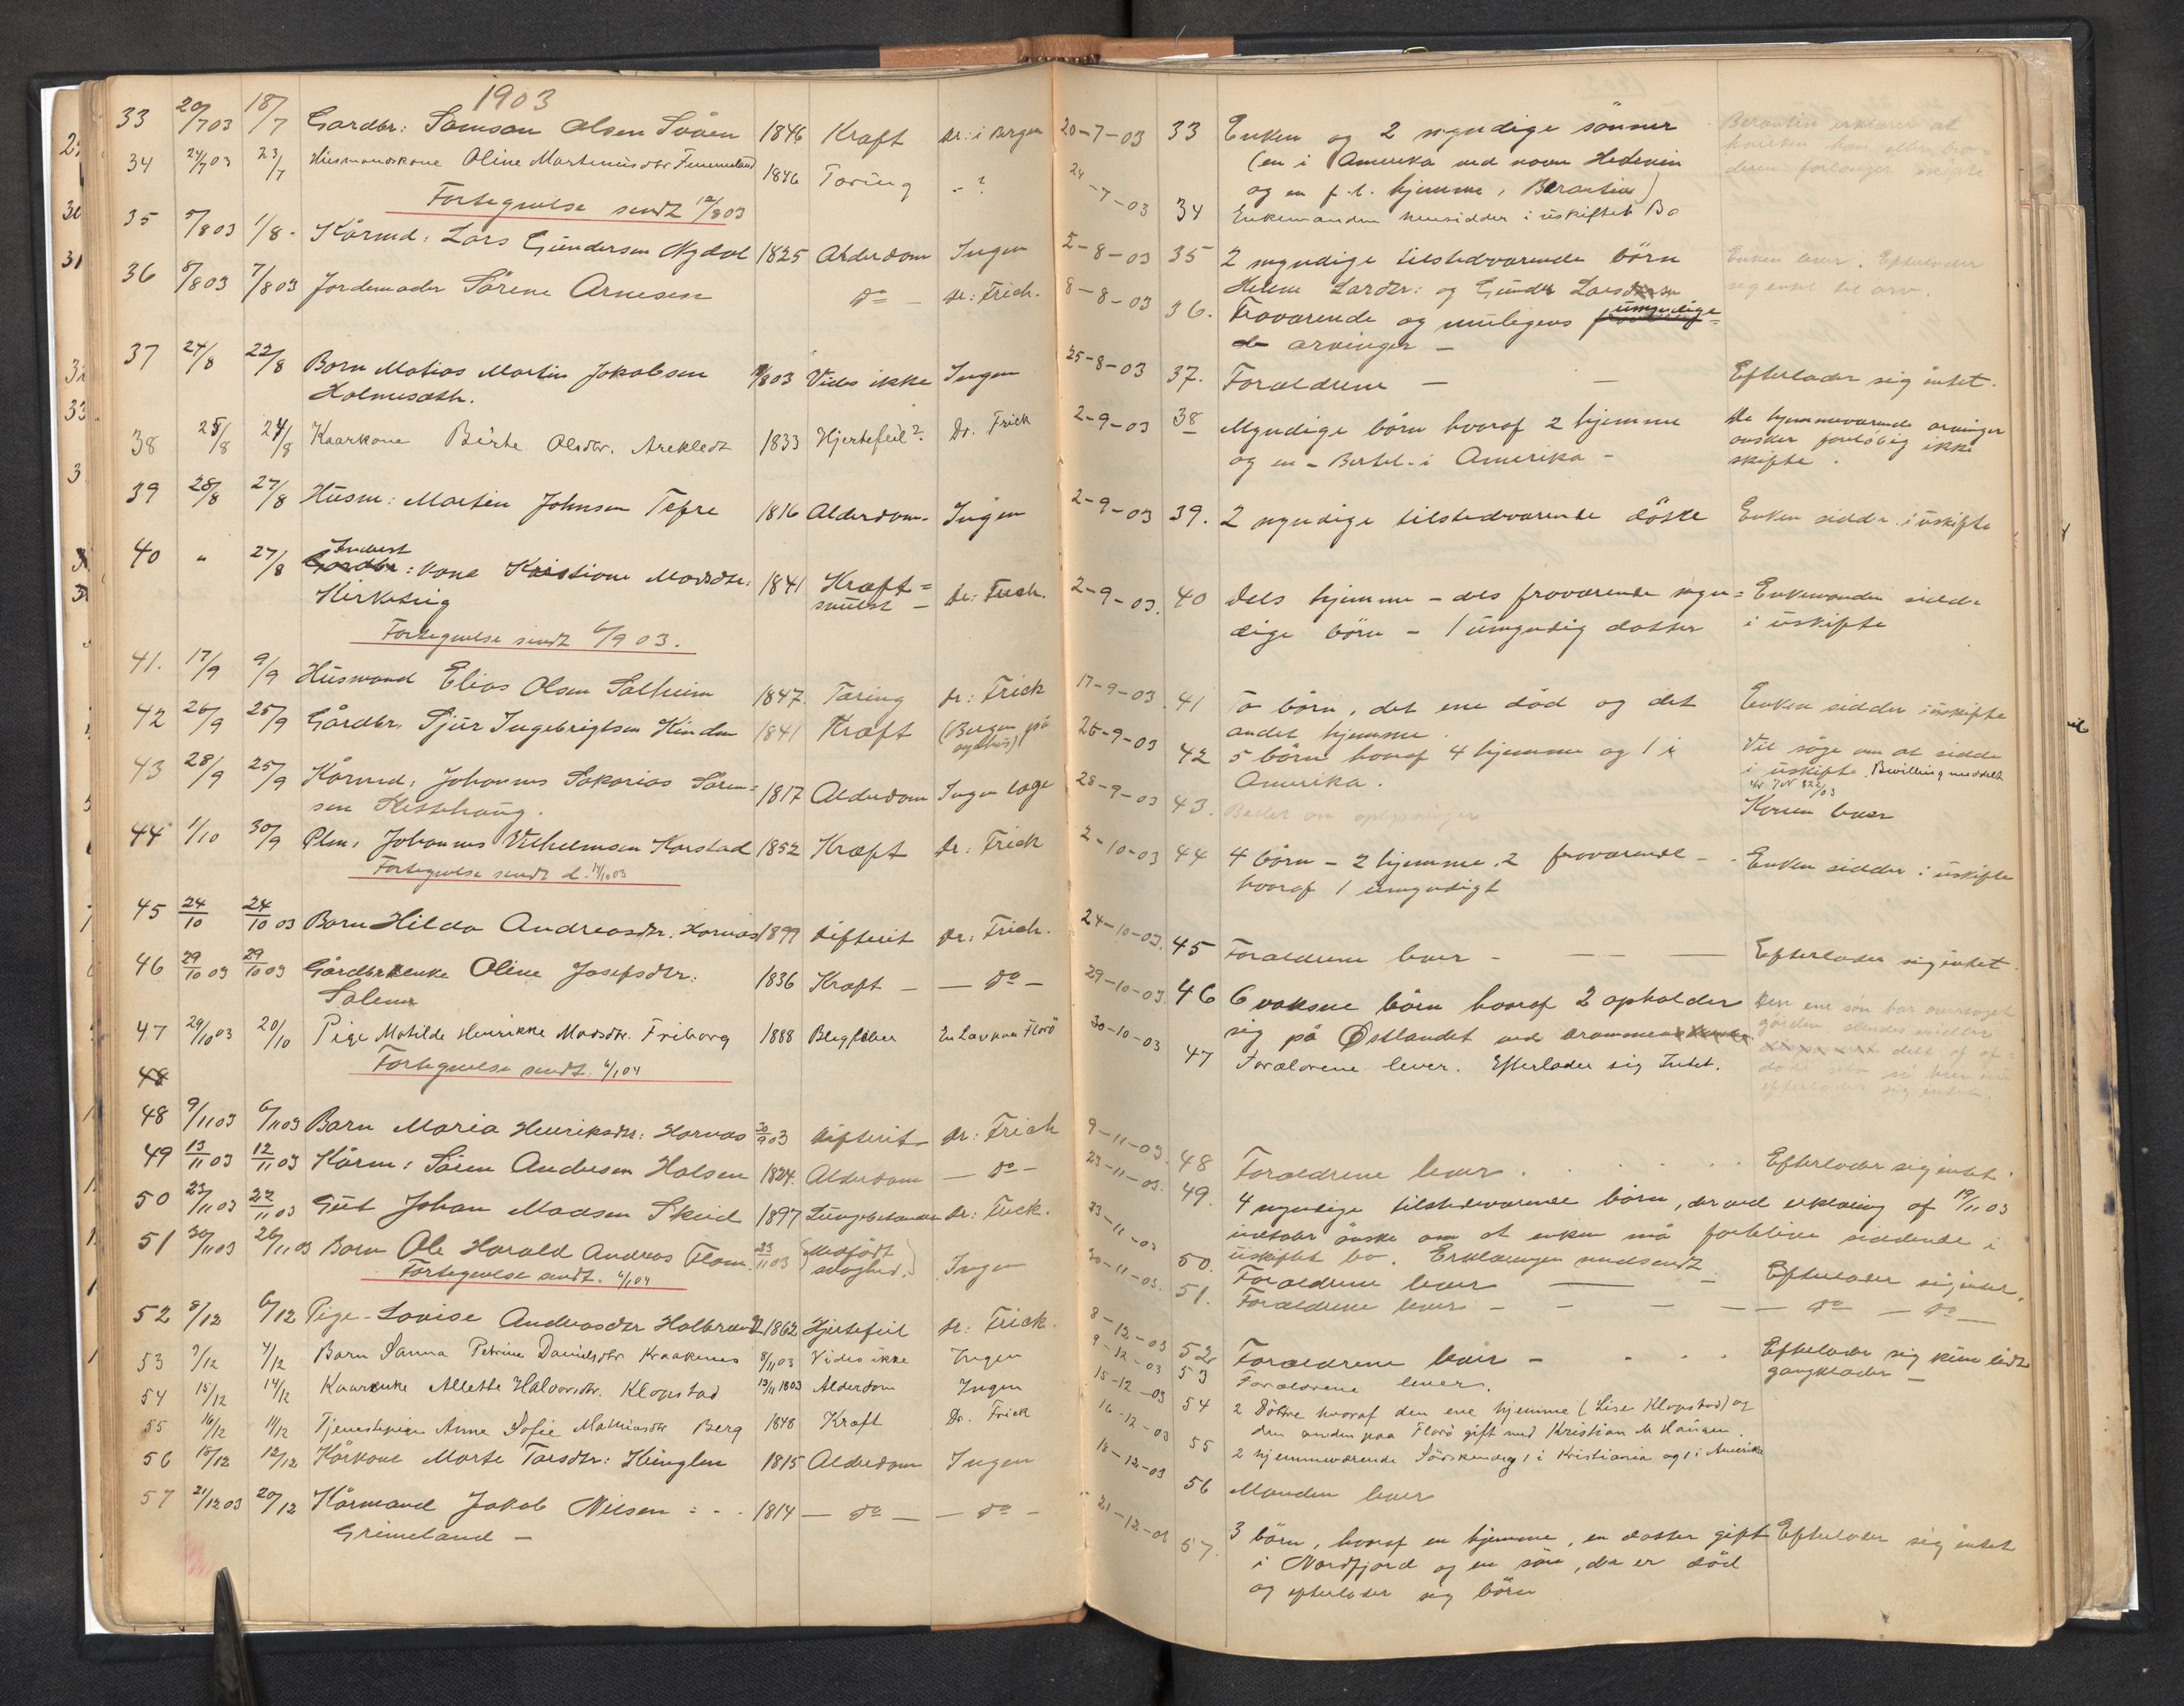 1903
33 20/7 03 18/7 Gardbr: Samson Olsen Svåen 1846 Kræft Dr: i Bergen
34 24/7 03 23/7 Husmandskone Oline Martinusdtr Femmeland 1846 Tæring - ?
Fortegnelse sendt 12/8 03
35 5/8 03 1/8 - Kårmd: Lars Gundersen Nydal 1825 Alderdom Ingen
36 8/8 03 7/8 03 Jordemoder Sörine Arnesen do - Dr: Frich.
37 24/8 22/8 Barn Matias Martin Jakobsen /8 03 Vides ikke Ingen
Holmesæth.
38 25/8 24/8 Kaarkone Birte Olsdtr. Arekledt 1833 Hjertefeil?. Dr. Frick
39 28/8 27/8 Husm: Martin Johnsen Tefre 1816 Alderdom - Ingen
40 " 27/8 Inderst kone Kristiane Madsdtr: 1841 Kræft= Dr: Frich.
Kirkeeig svulst -
Fortegnelse sendt 6/9 03.
41. 17/9 9/9 Husmand Elias Olsen Solheim 1847. Tæring Dr: Frick
42 26/9 25/9 Gårdbr. Sjur Ingebrigtsen Hinden 1841 Kræft (Bergen på
sygehus)
43 28/9 25/9 Kårmd: Johannes Sakarias Sören= 1817 Alderdom Ingen læge
sen
44 1/10 30/9 Johannes Vilhelmsen Karstad 1852 Kræft Dr: Frick
Fortegnelse sendt d. 14/10 03
45 24/10 24/10 03 Barn Hilda Andreasdtr. Hornæs 1899 Difterit Dr: Frich.
46 29/10 03 29/10 03 Gårdbr.enke Oline Josefsdtr: 1836 Kræft - - do -
Solem
47 29/10 03 20/10 Pige Matilde Henrikke Madsdtr. Friborg 1888 Blegfeber En Læ i Florö
Fortegnelse sendt. 6/1 04
48
48 9/11 03 6/11 03 Barn Maria Henriksdtr: Hornæs 30/9 03 Difterit Dr: Frich
49 13/11 03 12/11 03 Kårm: Sören Andersen Halsen 1824. Alderdom - do -
50 23/11 03 22/11 03 Gut Johan Madsen Skeid 1897 Lungebetændelse Dr: Frick.
51 30/11 03 26/11 03 Barn Ole Harald Andreas Flom. 23/11 03 (Medfödt
svaghed.) Ingen
Fortegnelse sendt. 6/1 04
52 8/12 6/12 Pige - Lovise Andreasdtr Holbrænd 1862 Hjertefeil Dr: Frick.
53 9/12 4/12 Barn Sanna Petrine Danielsdtr Kraakenes 8/11 03 Vides ikke Ingen
54 15/12 14/12 Kaarenke Allette Halvorsdtr. Klopstad 13/11 1803 Alderdom Ingen
55 16/12 14/12 Tjenestepige Anne Sofie Mathiasdtr Berg 1848 Kræft Dr. Frick
56 18/12 12/12 Kårkone Marte Larsdtr: Kunglen 1815 Alderdom Ingen
57 21/12 03 20/12 Kårmand Jakob Nilsen = - . 1814 - do - - do -
Grimeland -
20-7-03 33 Enken og 2 myndige sönner
(en i Amerika ved navn Hedevin
og en f. t. hjemme, Berantin)
Berantin erklærer at
hverken han eller bro=
deren forlanger skifte
24-7-03 34 Enkemanden hensidder i uskiftet Bo
5-8-03 35 2 myndige tilstedværende börn
Helene Larsdtr: og Gunder Larsen
Enken lever. Efterlader
sig intet til arv.
8-8-03 36. Fraværende og muligens umyndige
arvinger -
25-8-03 37. Forældrene - - Efterlader sig intet.
2-9-03 38 Myndige börn hvoraf 2 hjemme
og en - Bertel - i Amerika -
De hjemmeværende arvinger
önsker foreløbig ikke
skifte.
2-9-03 39. 2 myndige tilstedværende döttre Enken sidder i uskifte
2-9-03. 40 Dels hjemme - dels fraværende myn= Enkemanden sidder
dige börn - 1 umyndig datter i uskifte
17-9-03. 41 To börn, det ene död og det Enken sidder i uskifte
andet hjemme.
26-9-03 42 5 börn hvoraf 4 hjemme og 1 i Vil söge om at sidde
Amerika. i uskifte. Bevilling meddelt
28-9-03 43. Beder om oplysninger Konen lever
2-10-03 44 4 börn - 2 hjemme, 2 fraværende - - Enken sidder i uskifte
hvoraf 1 umyndigt
24-10-03. 45 Forældrene lever - - - - Efterlader sig intet.
29-10-03. 46 6 voksne börn hvoraf 2 opholder
sig på Østlandet ved Drammen
Den ene sön har overtaget
gården
efterlader sig intet.
30-10-03 47 Forældrene lever. Efterlader sig Intet.
9-11-03. 48 Forældrene lever. Efterlader sig intet.
23-11-03. 49. 4 myndige tilstedeværende börn, der ved erklæring af 19/11 03
udtaler önske om at enken må forblive siddende i
uskiftet bo. Erklæringen medsendt
23-11-03 50. Forældrene lever - Efterlader sig intet.
30-11-03. 51. Forældrene lever - - - - do - do -
8-12-03 52 Forældrene lever - . . . Efterlader sig kun lidt
gangklæder -
9-12-03 53 Forældrene lever.
15-12-03 54 2 Döttre hvoraf den ene hjemme (Lise Klopstad) og
den anden paa Florö gift med Kristian M Haugen.
16-12-03 55 2 hjemmeværende Söskende, 1 i Kristiania og 1 i Amerika
18-12-03 56 Manden lever
21-12-03 57. 3 börn, hvoraf en hjemme, en datter gift Efterlader sig intet
i Nordfjord og en sön, der er död
og efterlader sig börn